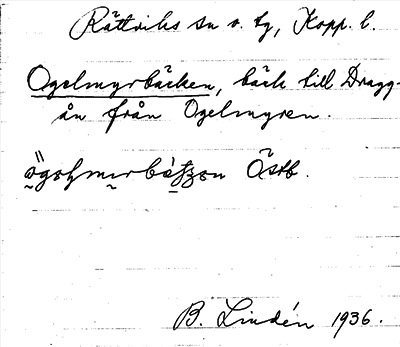 Rättviks sn o. tg, Kopp. l.
Ogelmyrbäcken, bäck till Dragg-
ån från Ogelmyren.
Östb.
B. Lindén 1936.